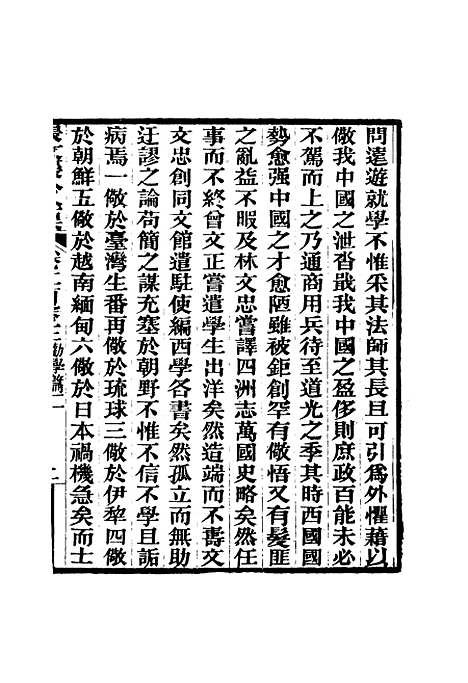 問遣遊就學不惟采其法師其長且可引爲外懼藉以
儆我中國之泄沓戢我中國之盈侈則庶政百能未必
不駕而上之乃通商用兵待至道光之季其時西國國
勢愈强中國之才愈陋雖被鉅創罕有儆悟又有髮匪
之亂益不暇及林文忠嘗譯四洲志萬國史略矣然任
事而不終曾文正嘗遣學生出洋矣然造端而不壽文
文忠創同文館遣駐使編西學各書矣然孤立而無助
迂謬之論苟簡之謀充塞於朝野不惟不信不學且詬
病焉一儆於臺灣生番再儆於琉球三儆於伊犂四儆
於朝鮮五儆於越南緬甸六儆於日本禍機急矣而士
勸學篇二